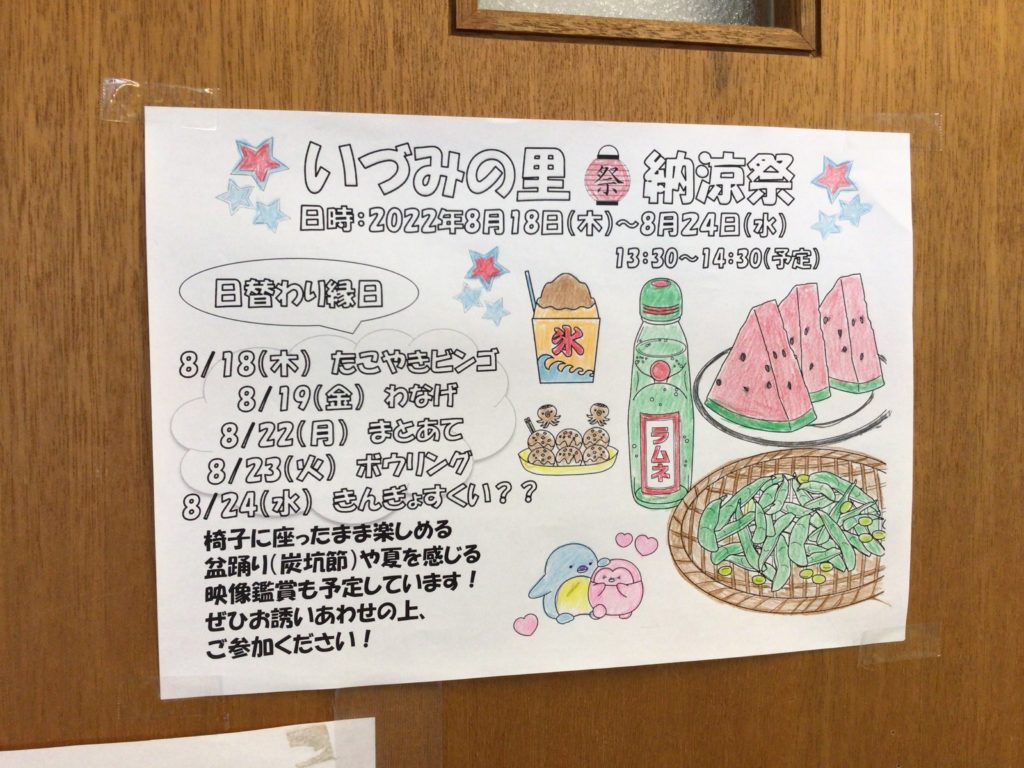 いづみの里 祭 納涼祭
日時：2022年8月18日(木)～8月24日(水)
13:30～14:30(予定)
日替わり縁日
8/18(木) たこやきビンゴ
8/19(金) わなげ
8/22(月) まとあて
8/23(火) ボウリング
8/24(水) きんぎょすくい？？
椅子に座ったまま楽しめる
盆踊り(炭坑節)や夏を感じる
映像鑑賞も予定しています！
ぜひお誘いあわせの上、
ご参加ください！
氷
ラムネ